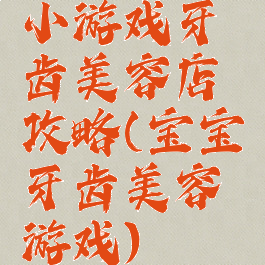 小游戏牙
齿美容店
攻略(宝宝
牙齿美容
游戏)